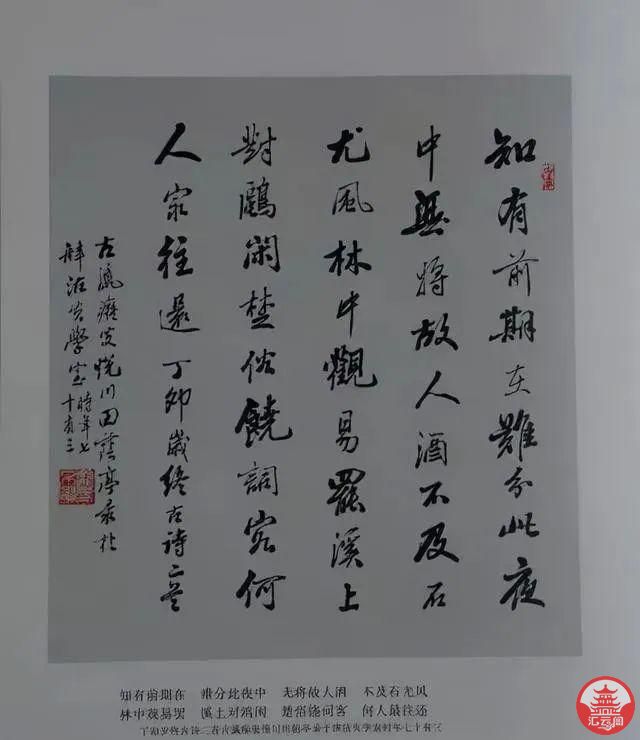 知有前期在難分此夜
中無將故人酒不及石
尤風林中觀易罷溪上
對鷗閑楚俗饒詞客何
人最往還丁卯歲終古詩二首
古瀛癡叟悦川田
學室時年七
十有三
知有前期在 难分此夜中 无将故人酒 不及石尤风
林中观易罢 溪上对鸥闲 楚俗饶词客 何人最往还
丁卯岁终古诗二首古瀛
时年七十有三
汇云阁